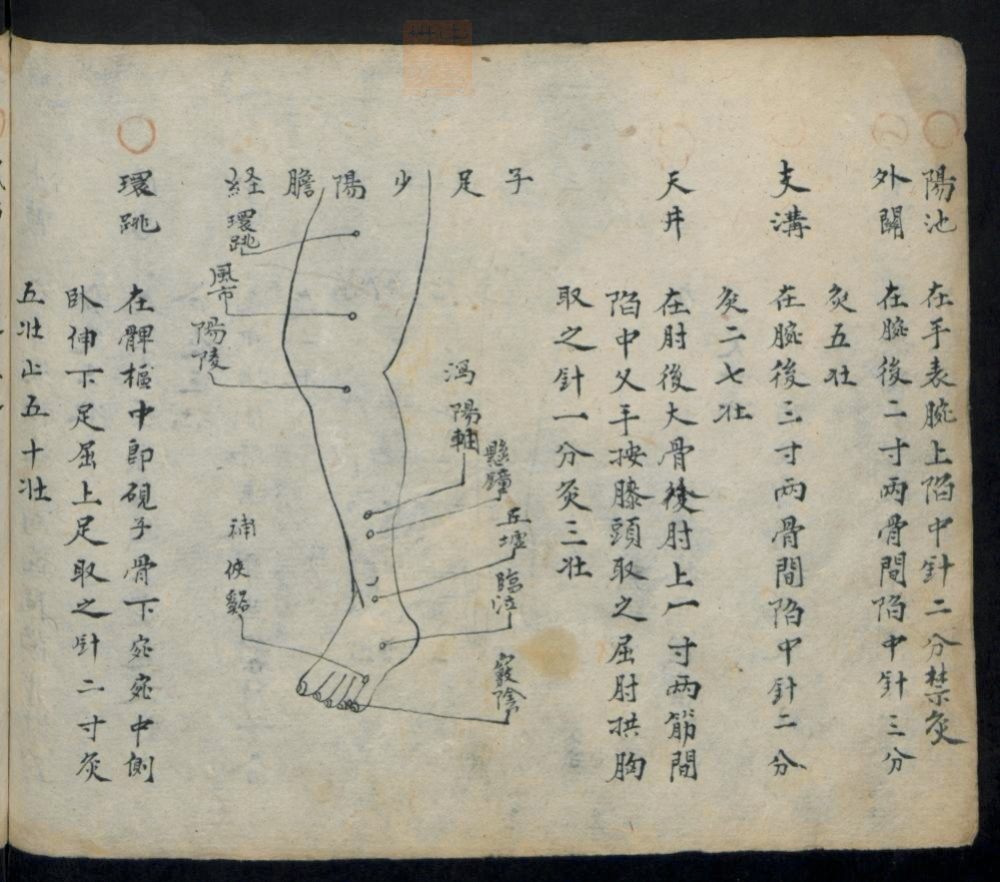 陽池 在手表腕上陷中針二分禁灸
外關 在腕後二寸兩骨間陷中針三分
灸五壯
支溝 在腕後三寸兩骨間陷中針二分
灸二七壯
天井 在肘後大骨後肘上一寸兩筋間
陷中叉手按膝頭取之屈肘拱胸
取之針一分灸三壯
子 足 少 陽 膽 経
窮陰
臨泣
丘墟
懸鐘
瀉 陽輔
環跳
風市
陽陵
補 俠谿
環跳 在髀樞中即硯子骨下宛宛中側
卧伸下足屈上足取之針二寸灸
五壯止五十壯